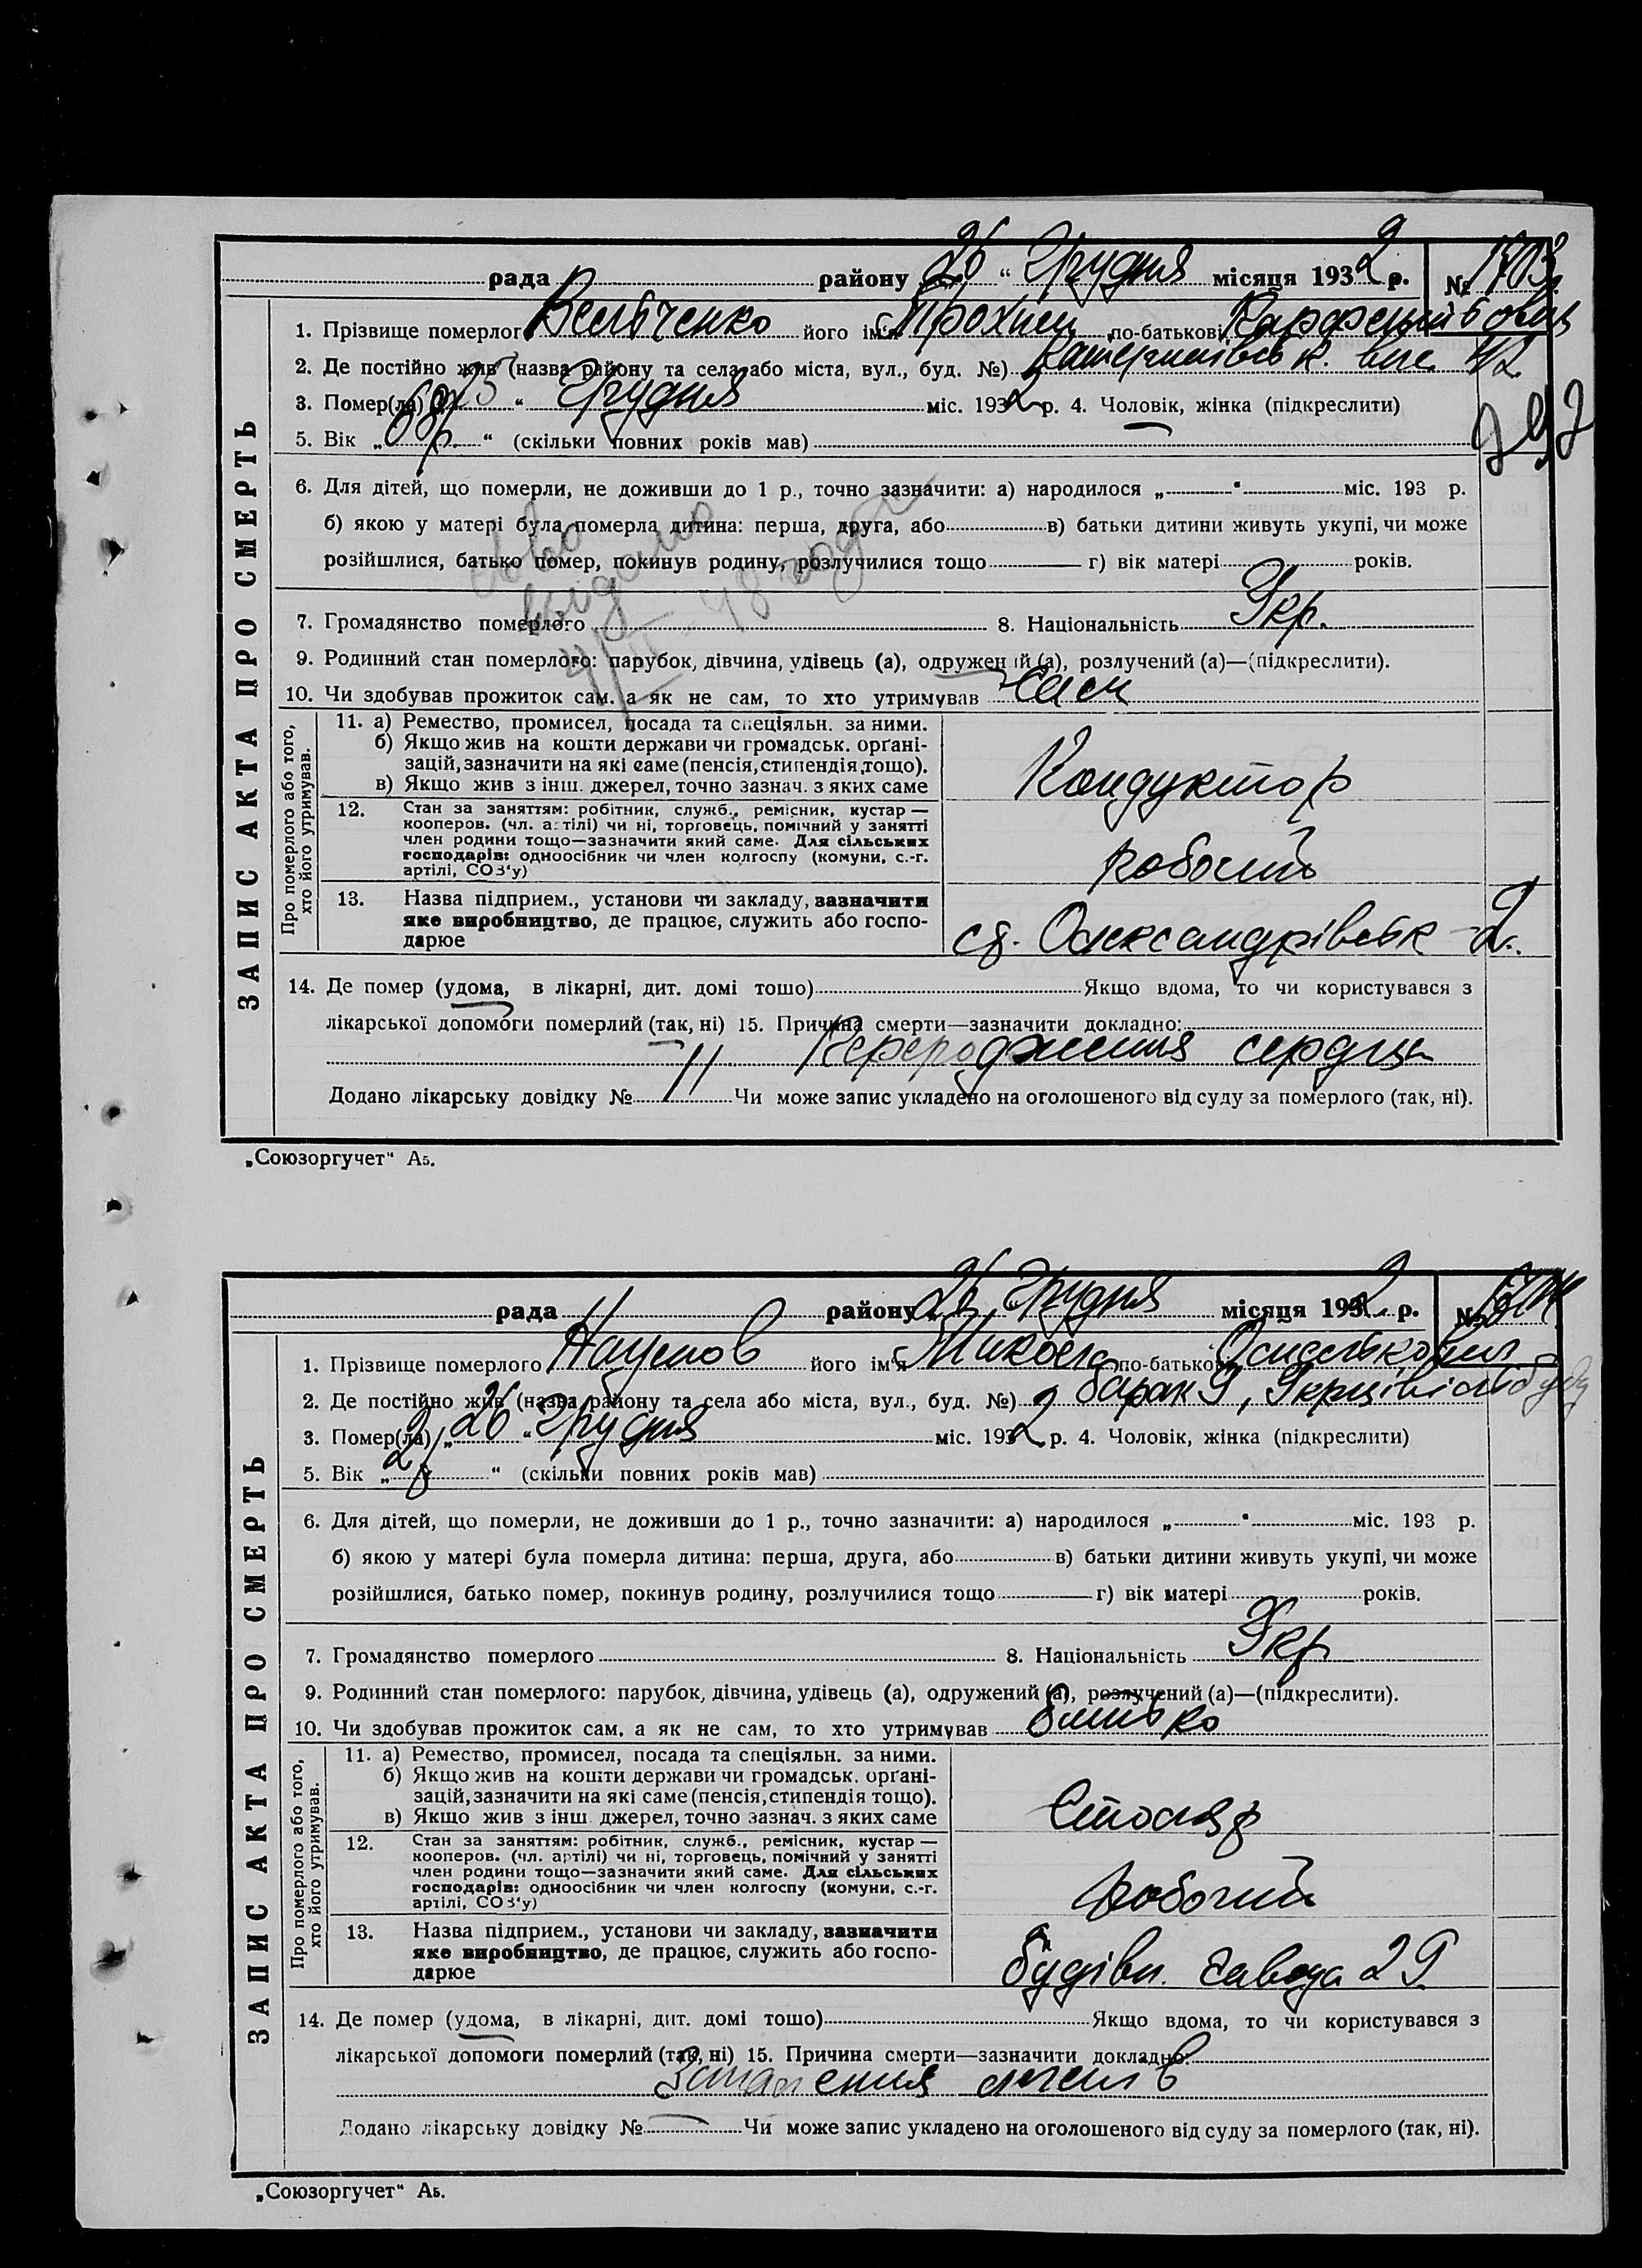 рада району 26 " Грудня місяця 1932 р. № 1703
1. Прізвище померлого його ім'я Трохим по-батькові
2. Де постійно жив (назва району та села або міста, вул., буд. №) вул. 42
3. Помер(ла) „ 25 " Грудня міс. 1932 р. 4. Чоловік, жінка (підкреслити)
5. Вік „ 68 р. " (скільки повних років мав)
6. Для дітей, що померли, не доживши до 1 р., точно зазначити: а) народилося „ " міс. 193 р.
б) якою у матері була померла дитина: перша, друга, або в) батьки дитини живуть укупі, чи може
розійшлися, батько помер, покинув родину, розлучилися тощо г) вік матері років.
видано
7. Громадянство померлого 8. Національність Укр.
9. Родинний стан померлого: парубок, дівчина, удівець (а), одружений (а), розлучений (а)—(підкреслити).
10. Чи здобував прожиток сам, а як не сам, то хто утримував Сам
ЗАПИС АКТА ПРО СМЕРТЬ
Про померлого або того,
хто його утримував.
11. а) Ремество, промисел, посада та спеціяльн. за ними.
б) Якщо жив на кошти держави чи громадськ. орґані-
зацій, зазначити на які саме (пенсія, стипендія, тощо).
в) Якщо жив з інш. джерел, точно зазнач. з яких саме
Кондуктор
12. Стан за заняттям: робітник, служб., ремісник, кустар —
кооперов. (чл. артілі) чи ні, торговець, помічний у занятті
член родини тощо—зазначити який саме. Для сільських
господарів: одноосібник чи член колгоспу (комуни, с.-г.
артілі, СОЗ'у)
робочий
13. Назва підприєм., установи чи закладу, зазначити
яке виробництво, де працює, служить або госпо-
дарює
ст. Олександрівськ - 2.
14. Де помер (удома, в лікарні, дит. домі тощо) Якщо вдома, то чи користувався з
лікарської допомоги померлий (так, ні) 15. Причина смерти—зазначити докладно:
Переродження сердца
Додано лікарську довідку № Чи може запис укладено на оголошеного від суду за померлого (так, ні).
„Союзоргучет" А5.
рада району 26 " Грудня місяця 1932 р. № 1704
1. Прізвище померлого Наумов його ім'я Микола по-батькові
2. Де постійно жив (назва району та села або міста, вул., буд. №) барак 9,
3. Помер(ла) „ 26 " Грудня міс. 1932 р. 4. Чоловік, жінка (підкреслити)
5. Вік „ " (скільки повних років мав)
6. Для дітей, що померли, не доживши до 1 р., точно зазначити: а) народилося „ " міс. 193 р.
б) якою у матері була померла дитина: перша, друга, або в) батьки дитини живуть укупі, чи може
розійшлися, батько помер, покинув родину, розлучилися тощо г) вік матері років.
7. Громадянство померлого 8. Національність Укр
9. Родинний стан померлого: парубок, дівчина, удівець (а), одружений (а), розлучений (а)—(підкреслити).
10. Чи здобував прожиток сам, а як не сам, то хто утримував батько
ЗАПИС АКТА ПРО СМЕРТЬ
Про померлого або того,
хто його утримував.
11. а) Ремество, промисел, посада та спеціяльн. за ними.
б) Якщо жив на кошти держави чи громадськ. орґані-
зацій, зазначити на які саме (пенсія, стипендія тощо).
в) Якщо жив з інш. джерел, точно зазнач. з яких саме
Столяр
12. Стан за заняттям: робітник, служб., ремісник, кустар —
кооперов. (чл. артілі) чи ні, торговець, помічний у занятті
член родини тощо—зазначити який саме. Для сільських
господарів: одноосібник чи член колгоспу (комуни, с.-г.
артілі, СОЗ'у)
робочий
13. Назва підприєм., установи чи закладу, зазначити
яке виробництво, де працює, служить або госпо-
дарює
будівн. завода 29
14. Де помер (удома, в лікарні, дит. домі тощо) Якщо вдома, то чи користувався з
лікарської допомоги померлий (так, ні) 15. Причина смерти—зазначити докладно:
Запалення легенів
Додано лікарську довідку № Чи може запис укладено на оголошеного від суду за померлого (так, ні).
„Союзоргучет" А5.